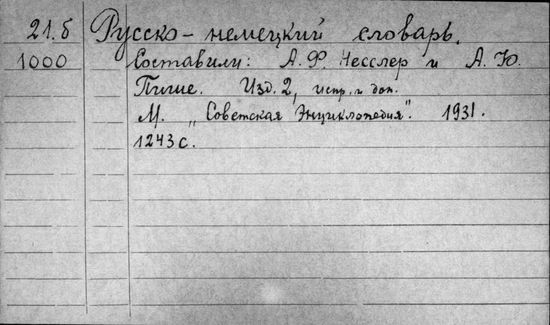 21.б Русско-немецкий словарь.
1000 Составили: А. Ф. Несслер и А. Ю.
Пише. Изд. 2, испр. и доп.
М. „Советская Энциклопедия". 1931.
1243 с.